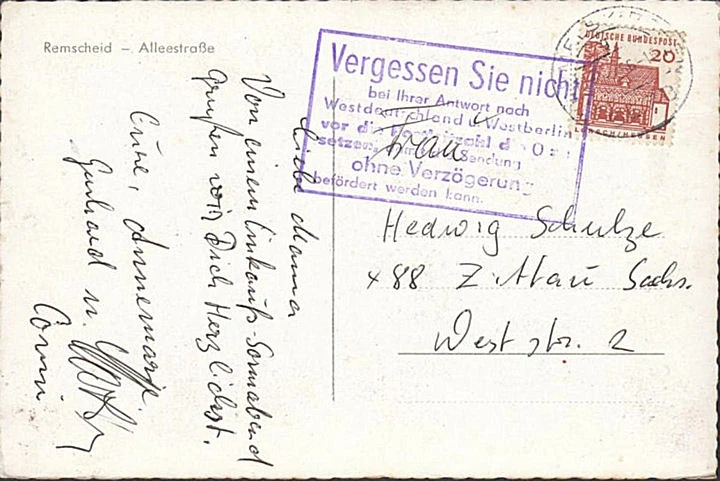 Remscheid – Alleestraße
Liebe Mama
Von einem Einkaufs-Sonnabend
grüßen wir Dich Herzlichst.
Eure, Annemarie
Gerhard u.
Conni
Vergessen Sie nicht
bei Ihrer Antwort nach
Westdeutschland u. Westberlin
vor die Postleitzahl d
setzen, Sendung
ohne Verzögerung
befördert werden kann.
DEUTSCHE BUNDESPOST
20
LORSCH/HESSEN
Frau
Hedwig Schulze
x88 Zittau Sachs.
Weststr. 2